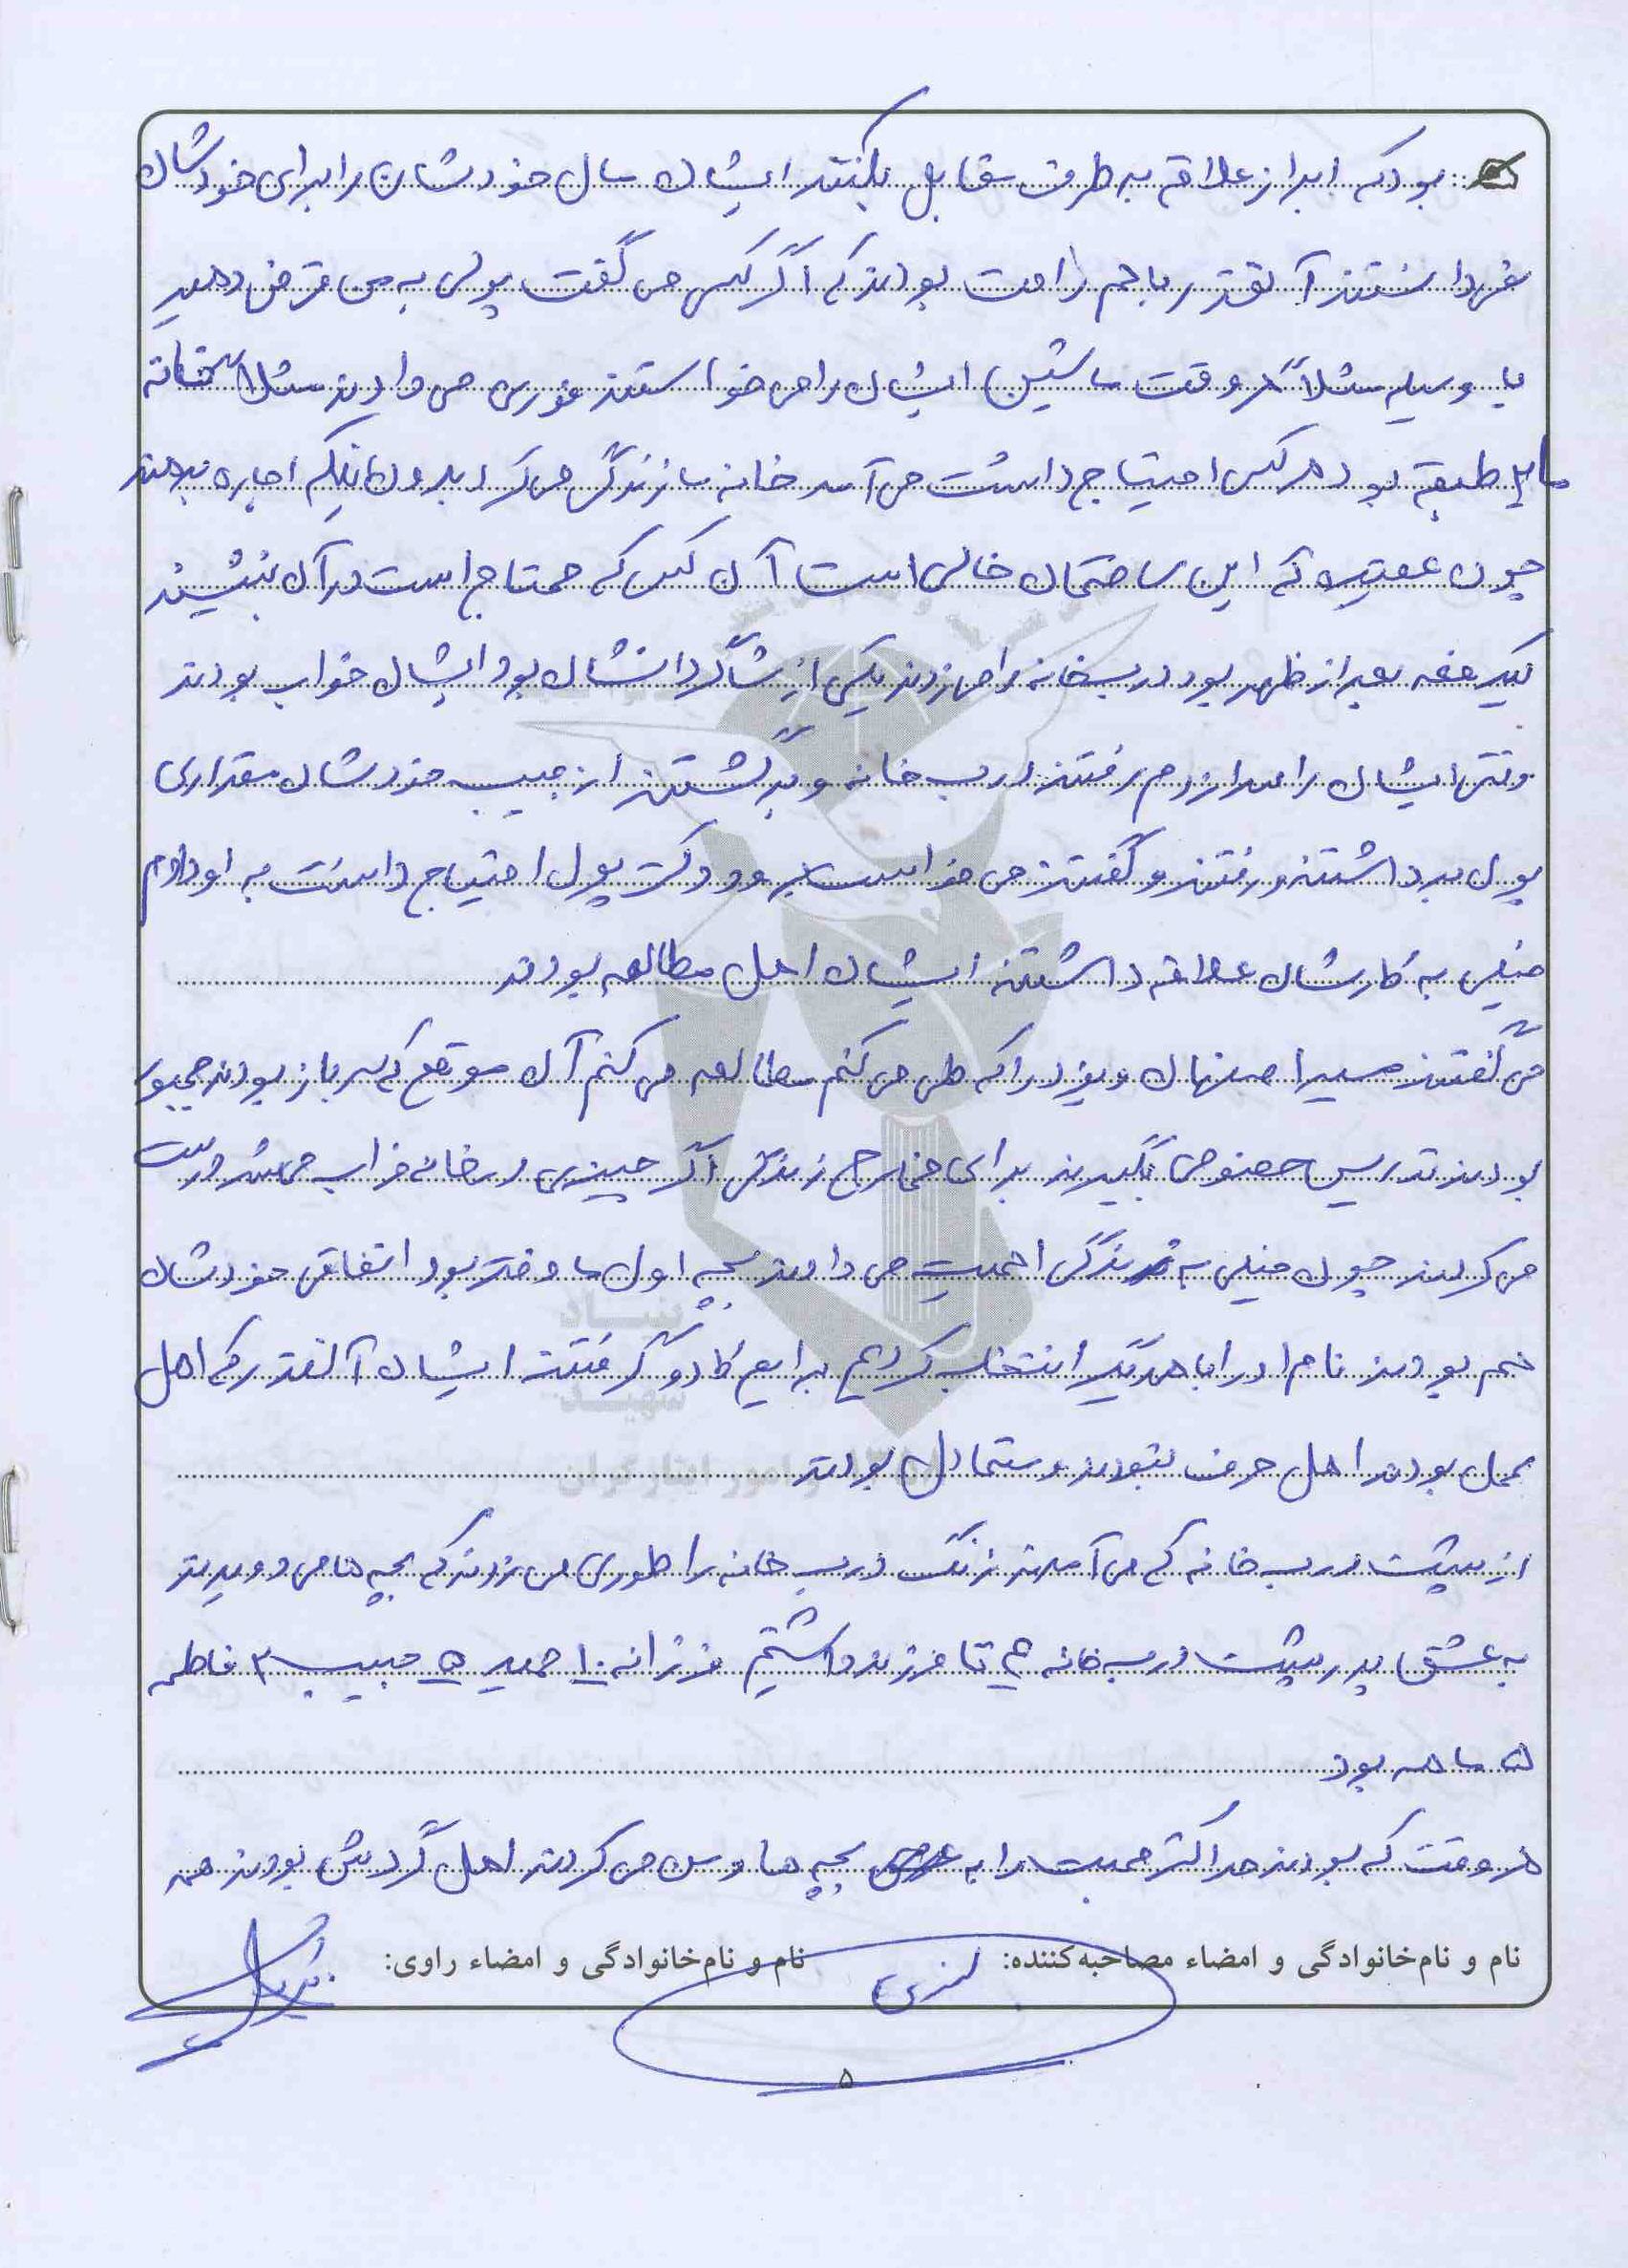 بود که ابراز علاقه به طرف مقابل بکنند ایشان مال خودشان را برای خودشان
نمی‌داشتند آنقدر باهم راحت بودند که اگر کسی می گفت پولی به من قرض دهید
یا وسیله مثلاً هر وقت ماشین ایشان را می خواستند فوری می دادند مثلا خانه
ما ۲ طبقه بود هرکس احتیاج داشت می آمد خانه ما زندگی می کرد بدون اینکه اجاره بدهند
چون عقیده که این ساختمان خالی است آن کس که محتاج است در آن بنشیند
یک دفعه بعد از ظهر بود درب خانه را می زدند یکی از شاگردانشان بود ایشان خواب بودند
وقتی ایشان را صدا زدم رفتند درب خانه و برگشتند از جیب خودشان مقداری
پول برداشتند و رفتند و گفتند می خواست برود دکتر پول احتیاج داشت به او دادم
خیلی به کارشان علاقه داشتند ایشان اهل مطالعه بودند
می گفتند مسیر اصفهان و یزد را که طی می کنم مطالعه می کنم آن موقع که سرباز بودند مجبور
بودند تدریس خصوصی بگیرند برای مخارج زندگی اگر چیزی در خانه خراب می شد درست
می کردند چون خیلی به زندگی اهمیت می دادند بچه اول ما دختر بود اتفاقی خودشان
هم بودند نام او را با همدیگر انتخاب کردیم برایم کادو گرفتند ایشان آنقدر که اهل
عمل بودند اهل حرف نبودند و متعادل بودند
از پشت درب خانه که می آمدند زنگ درب خانه را طوری می زدند که بچه ها می دویدند
به عشق پدر پشت درب خانه ۴ تا فرزند داشتیم فرزانه ۱۰ حمید ۵ حبیب ۳ فاطمه
۵ ماهه بود
هر وقت که بودند حداکثر محبت را به بچه ها می کردند اهل گردش بودند همه
نام و نام‌خانوادگی و امضاء مصاحبه‌کننده:
نام و نام‌خانوادگی و امضاء راوی:
۵